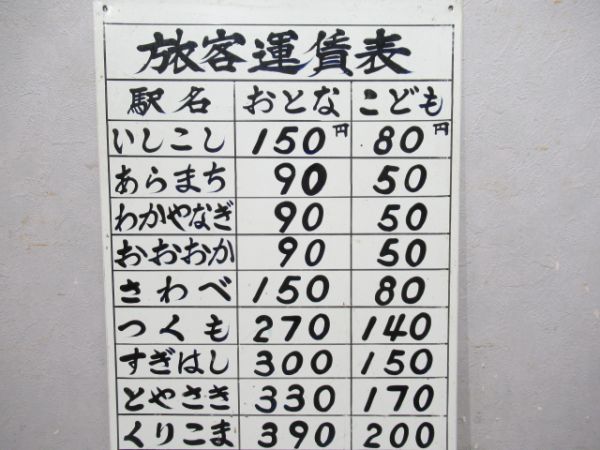 旅客運賃表
駅名 おとな こども
いしこし 150円 80円
あらまち 90 50
わかやなぎ 90 50
おおおか 90 50
さわべ 150 80
つくも 270 140
すぎはし 300 150
とやさき 330 170
くりこま 390 200